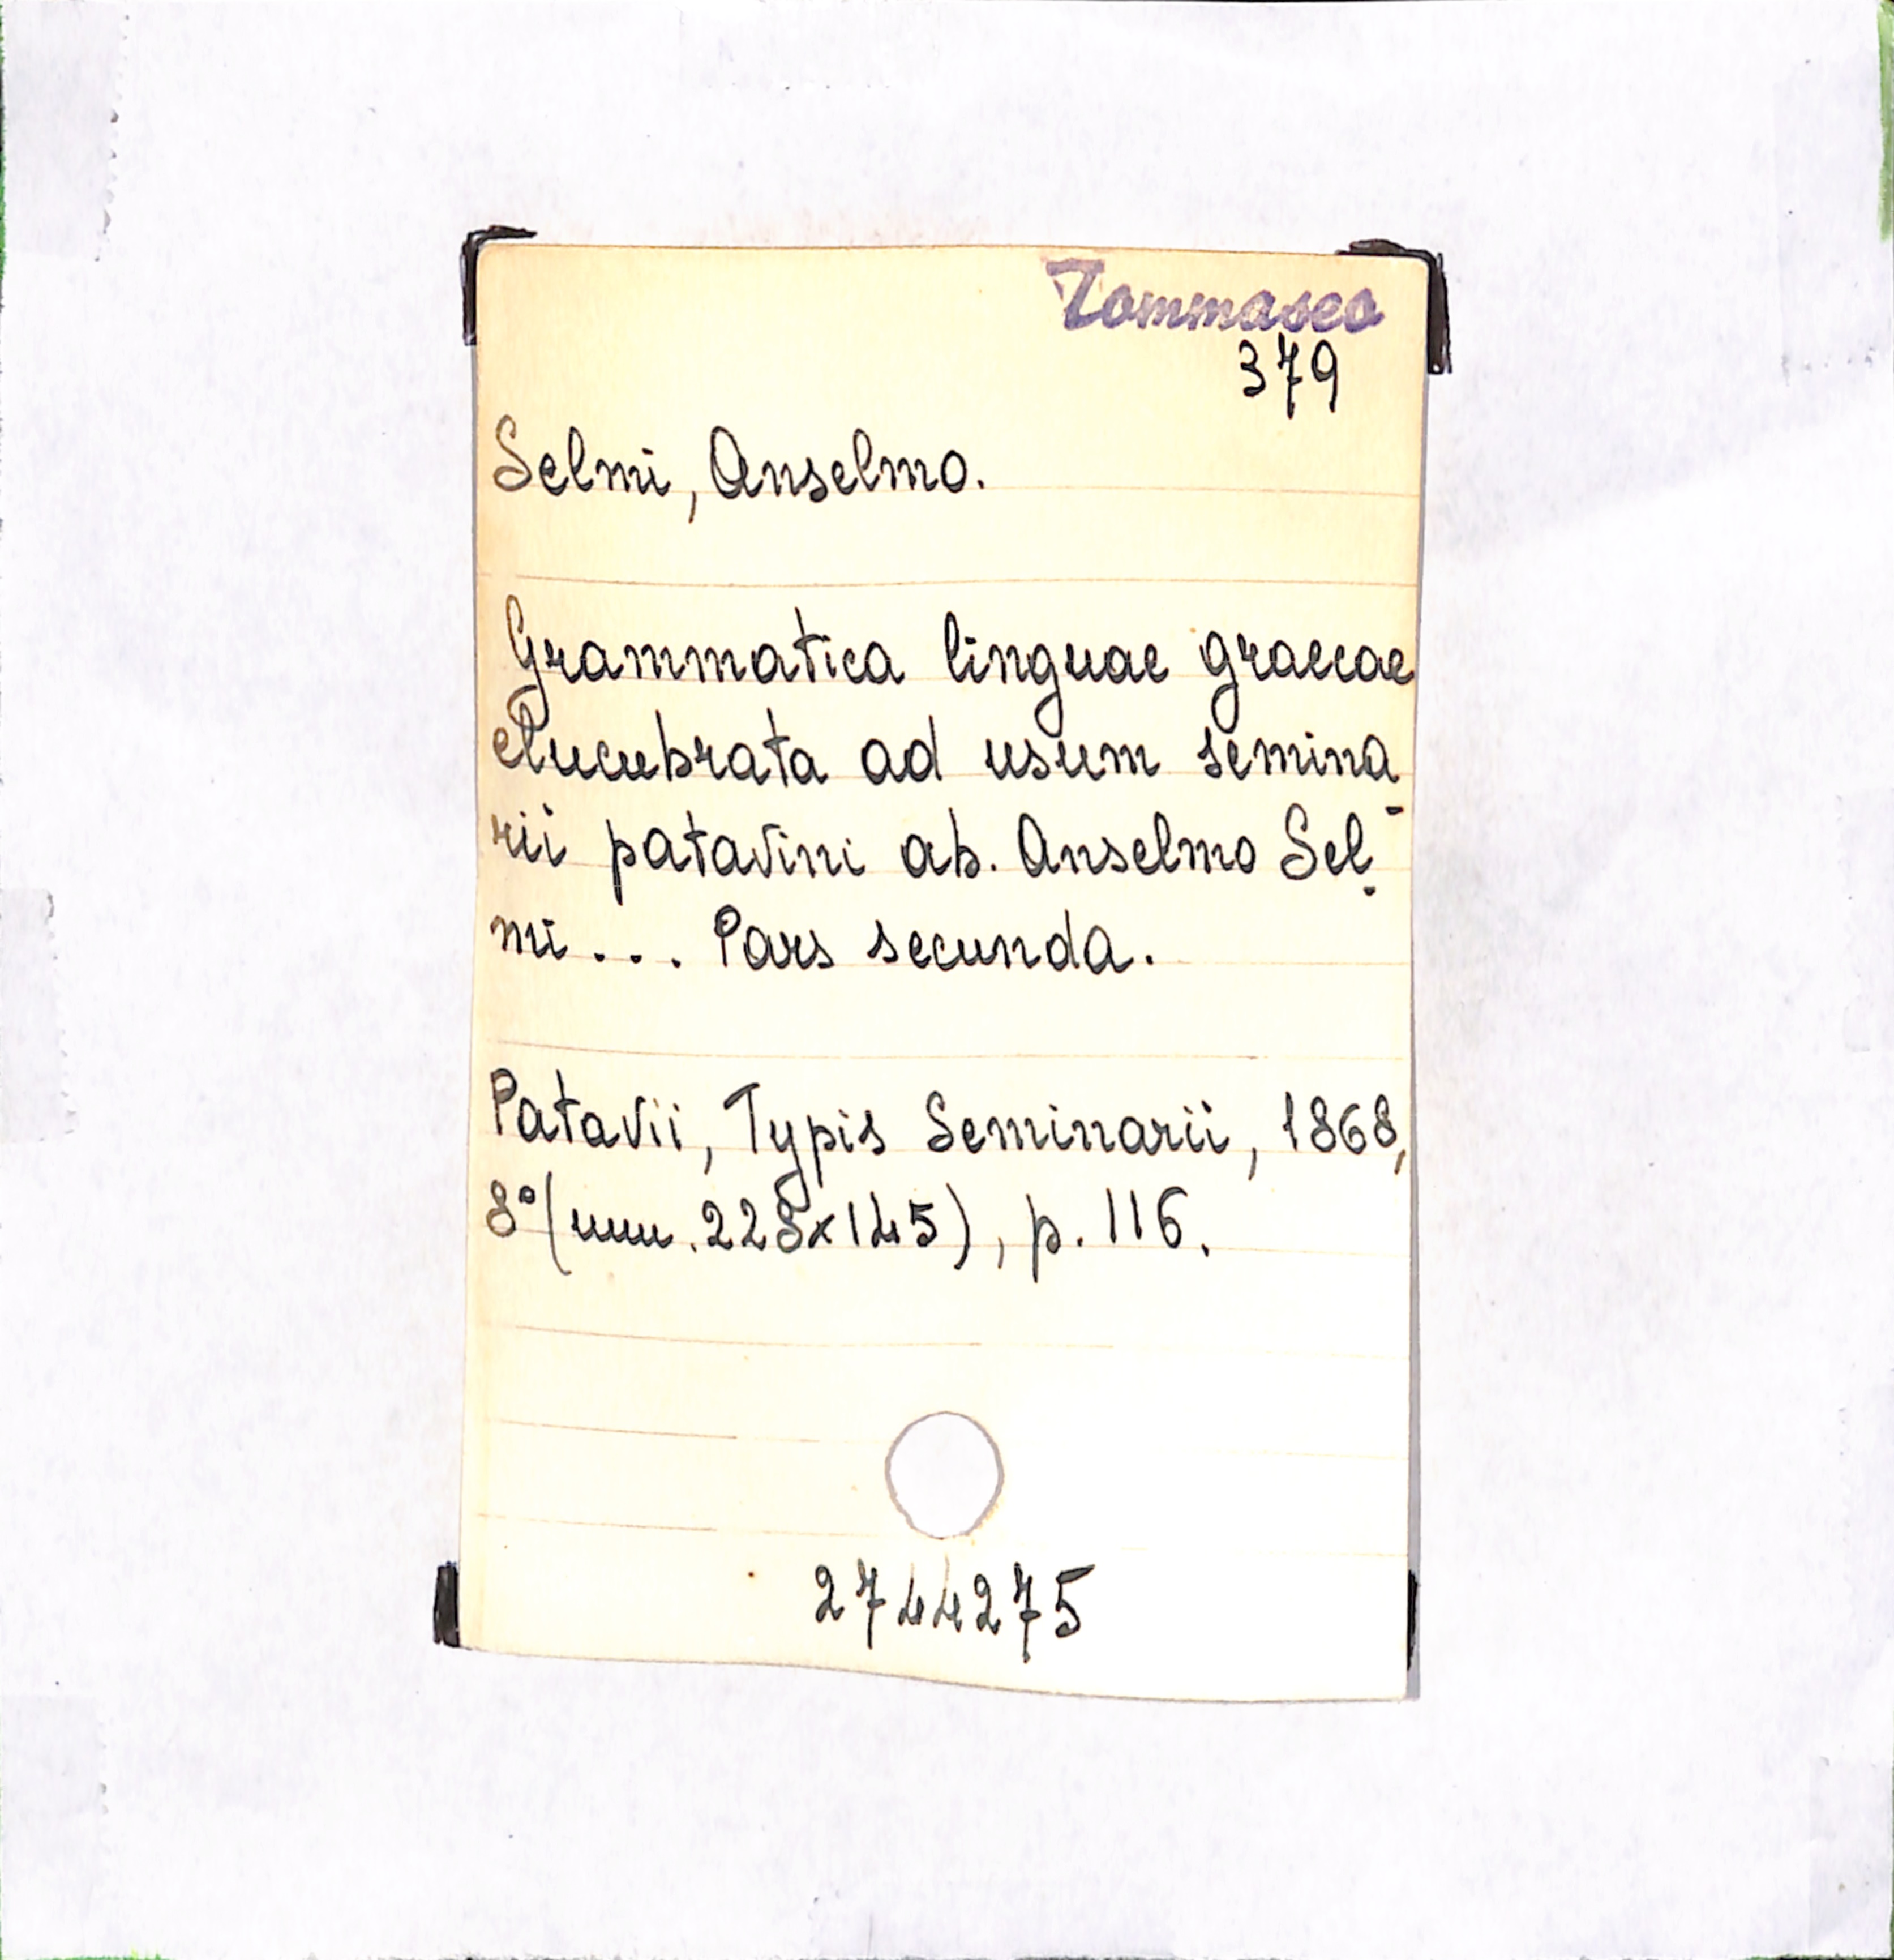 Tommaseo
379
Selmi, Anselmo.
Grammatica linguae graecae
elucubrata ad usum semina-
rii patavini ab. Anselmo Sel-
mi... Pars secunda.
Patavii, Typis Seminarii, 1868,
8° (mm. 228x145), p. 116.
2744275